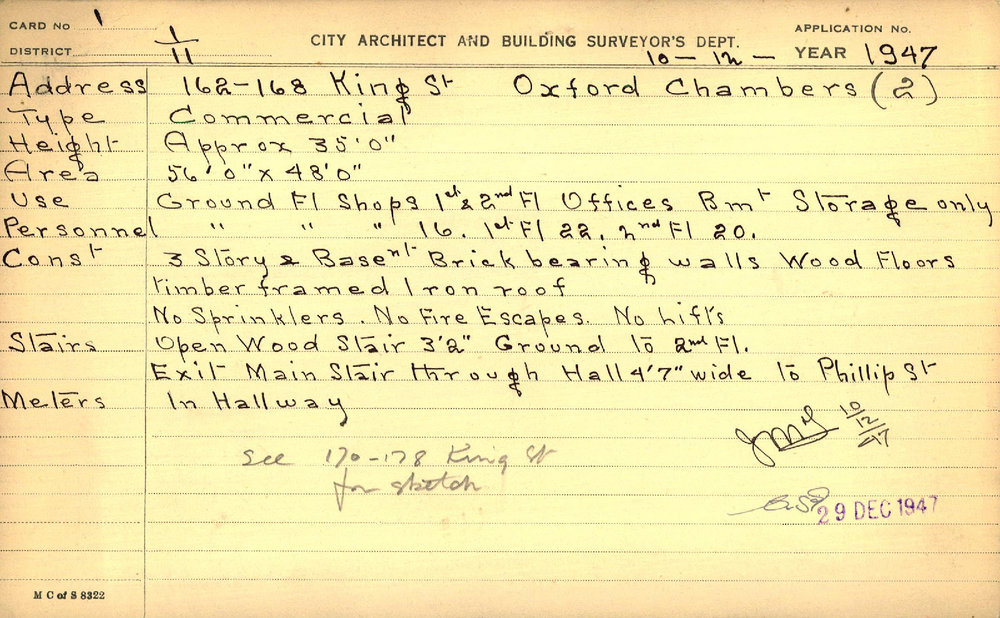 CARD No 1
DISTRICT 1/11
CITY ARCHITECT AND BUILDING SURVEYOR'S DEPT.
APPLICATION No.
10 - 12 - YEAR 1947
Address 162-168 King St Oxford Chambers (2)
Type Commercial
Height Approx 35'0"
Area 56'0" x 48'0"
Use Ground Fl Shops 1st & 2nd Fl Offices Bmt Storage only
Personnel " " " 16. 1st Fl 22. 2nd Fl 20.
Const 3 Story & Basent Brick bearing walls Wood Floors
timber framed Iron roof
No Sprinklers. No Fire Escapes. No Lifts
Stairs Open Wood Stair 3'2" Ground to 2nd Fl.
Exit Main Stair through Hall 4'7" wide to Phillip St
Meters In Hallway
10/12/47
see 170-178 King St
for sketch
29 DEC 1947
M C of S 8322